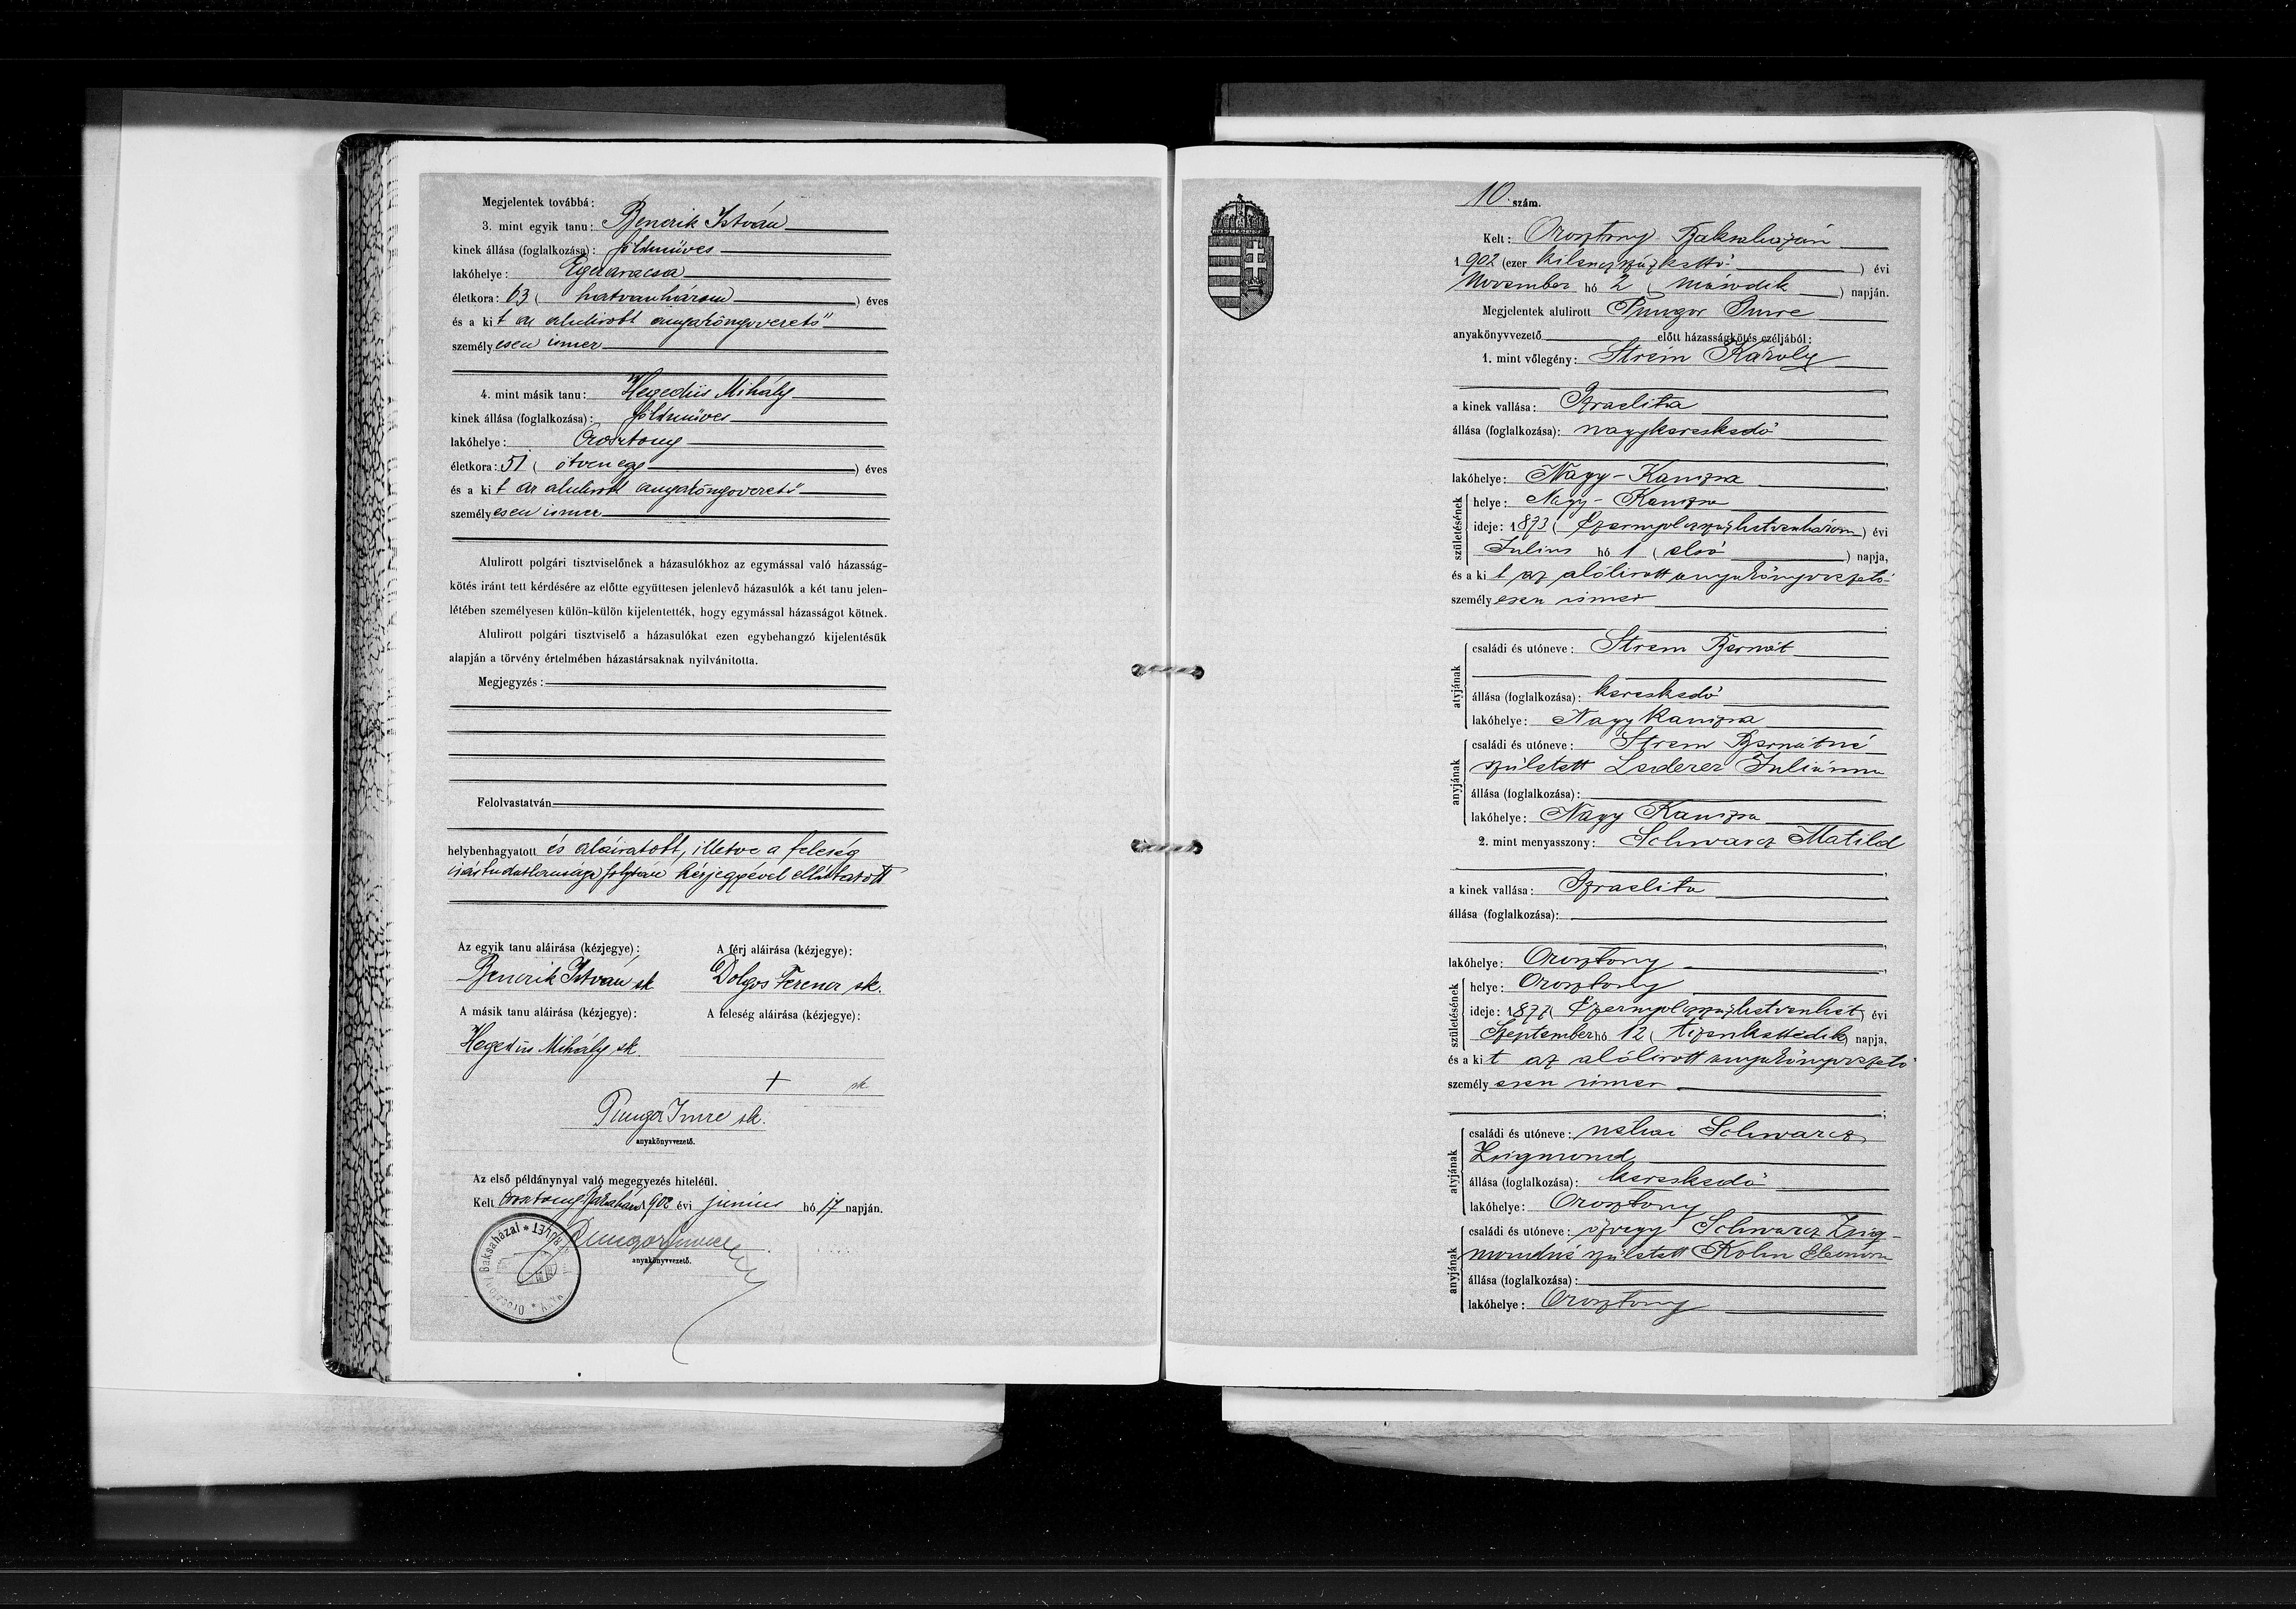 Megjelentek továbbá:
3. mint egyik tanu: Bencrik István
kinek állása (foglalkozása): földmüves
lakóhelye: Egeraracsa
életkora: 63 (hatvanhárom) éves
és a kit az alulirott anyakönyvvezető
személyesen ismer
4. mint másik tanu: Hegedüs Mihály
kinek állása (foglalkozása): földmüves
lakóhelye: Orosztony
életkora: 51 (ötvenegy) éves
és a kit az alulirott anyakönyvvezető
személyesen ismer
Alulirott polgári tisztviselőnek a házasulókhoz az egymással való házasság-
kötés iránt tett kérdésére az előtte együttesen jelenlevő házasulók a két tanu jelen-
létében személyesen külön-külön kijelentették, hogy egymással házasságot kötnek.
Alulirott polgári tisztviselő a házasulókat ezen egybehangzó kijelentésük
alapján a törvény értelmében házastársaknak nyilvánitotta.
Megjegyzés:
Felolvastatván
helybenhagyatott és aláiratott, illetve a feleség
irástudatlansága folytán kézjegyével elláttatott
Az egyik tanu aláirása (kézjegye): A férj aláirása (kézjegye):
Bencrik István sk Dolgos Ferencz sk.
A másik tanu aláirása (kézjegye): A feleség aláirása (kézjegye):
Hegedüs Mihály sk.
+ sk
Pungor Imre sk.
anyakönyvvezető.
Az első példánynyal való megegyezés hiteléül.
Kelt Orosztony-Baksaházán 1902 évi junius hó 17 napján.
Pungor Imre
anyakönyvvezető.
10. szám.
Kelt: Orosztony-Baksaházán
1902 (ezer kilenczszázkettő) évi
November hó 2 (második) napján.
Megjelentek alulirott Pungor Imre
anyakönyvvezető előtt házasságkötés czéljából:
1. mint vőlegény: Strém Károly
a kinek vallása: Izraelita
állása (foglalkozása): nagykereskedő
lakóhelye: Nagy-Kanizsa
születésének helye: Nagy-Kanizsa
ideje: 1873 (Ezernyolczszázhetvenhárom) évi
Julius hó 1 (első) napja,
és a kit az alólirott anyakönyvvezető
személyesen ismer
atyjának családi és utóneve: Strem Bernát
állása (foglalkozása): kereskedő
lakóhelye: Nagy Kanizsa
anyjának családi és utóneve: Strem Bernátné
született Lederer Juliánna
állása (foglalkozása):
lakóhelye: Nagy Kanizsa
2. mint menyasszony: Schwarcz Matild
a kinek vallása: Izraelita
állása (foglalkozása):
lakóhelye: Orosztony
születésének helye: Orosztony
ideje: 1877 (Ezernyolczszázhetvenhét) évi
Szeptember hó 12 (tizenkettedik) napja,
és a kit az alólirott anyakönyvvezető
személyesen ismer
atyjának családi és utóneve: néhai Schwarcz
Zsigmond
állása (foglalkozása): kereskedő
lakóhelye: Orosztony
anyjának családi és utóneve: özvegy Schwarcz Zsig-
mondné született Kohn Eleonora
állása (foglalkozása):
lakóhelye: Orosztony